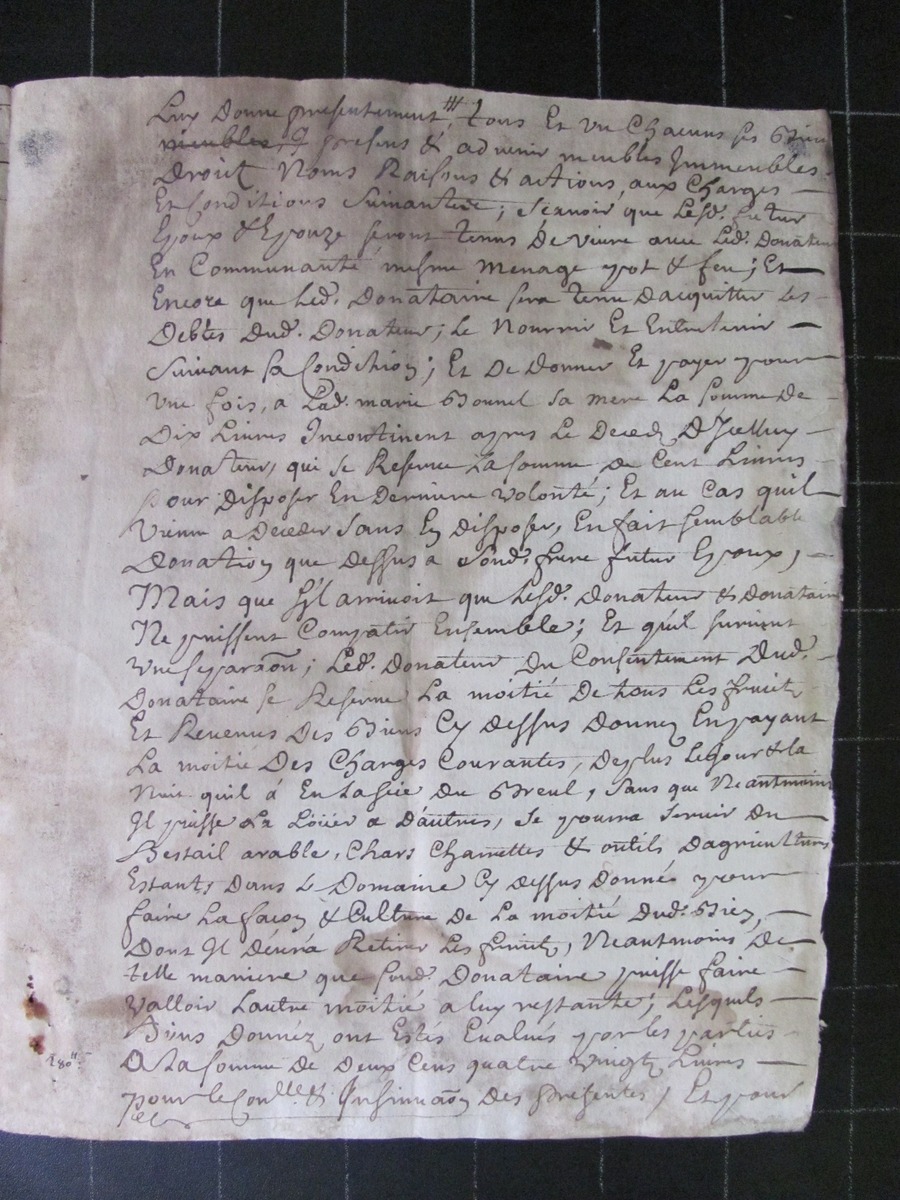 Luy Donne presentement, tous Et Un Chacuns ses Bien
meubles & presens & advenir meubles Immeubles
Droict Noms Raisons & actions, aux Charges
Et Conditions Suivantes; Scavoir que Lesd. futur
Epoux & Epouze seront tenus de vivre avec Led. Donateur
En Communauté mesme menage pot & feu; Et
Encore que Led. Donataire sera tenu Dacquitter Les
Debtes Dud. Donateur; Le Nourrir Et Entretenir
Suivant sa Condition; Et De Donner Et payer pour
Une fois, a Lad. marie Bonnel sa mere La somme De
Dix Livres Incontinent apres Le Deced D'Icelluy
Donateur, qui se Reserve La somme De Cent Livres
pour Disposer En Derniere volonté; Et au Cas quil
vienne a Deceder Sans En Disposer, En fait semblable
Donation que Dessus a Sond. frere futur Epoux,
Mais que s'Il arrivoit que Lesd. Donateur & Donataire
Ne puissent Compatir Ensemble; Et quil survint
Une separaõn; Led. Donateur Du Consentement Dud.
Donataire se Reserve La moitié De tous Les fruits
Et Revenus Des Biens Cy Dessus Donnez En payant
La moitié Des Charges Courantes, Deplus Le jour & la
Nuit quil á En La du Breul, Sans que Neantmoins
Il puisse La Loüer a D'autres, Se pourra Servir Du
Bestail arable, Chars Charrettes & outils Dagriculture
Estants Dans Le Domaine Cy Dessus Donné pour
faire La facon & Culture De La moitié Dud. Bien,
Dont Il Devra Retirer Les fruits, Neantmoins De
telle maniere que Sond. Donataire puisse faire
valloir Lautre moitié a luy restante; Lesquels
Biens Donnéz ont Estés Evalués par les parties
A La somme De Deux Cens quatre vingt Livres
280ᵗᵗ
pour Le Conlle & Insinuaõn Des presentes, Et pour